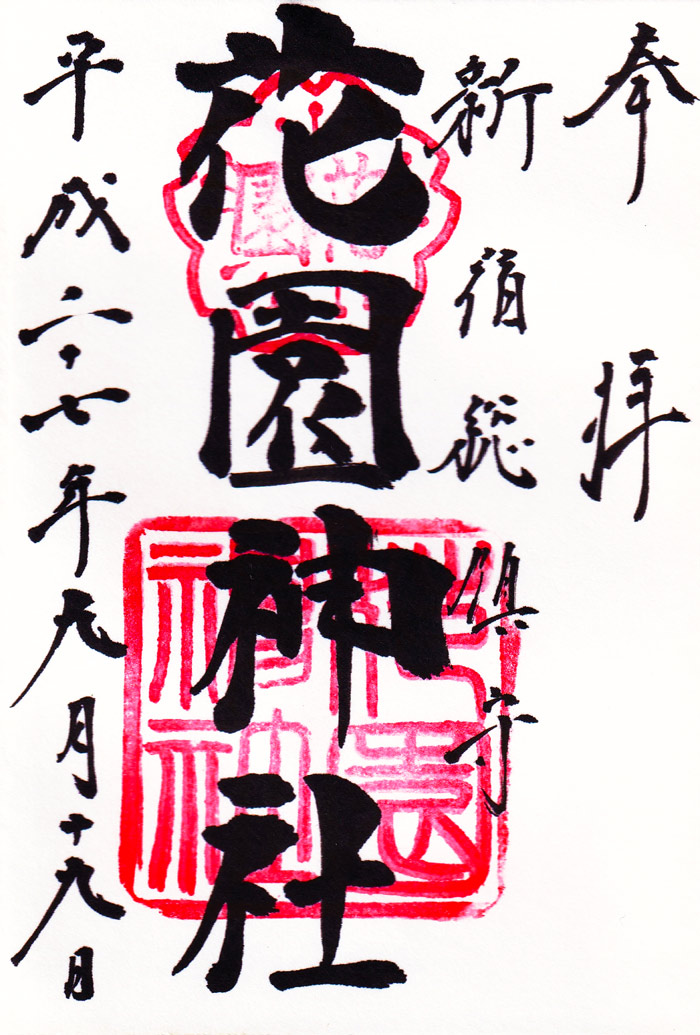 奉拝
新宿総鎮守
花園神社
平成二十七年九月十九日